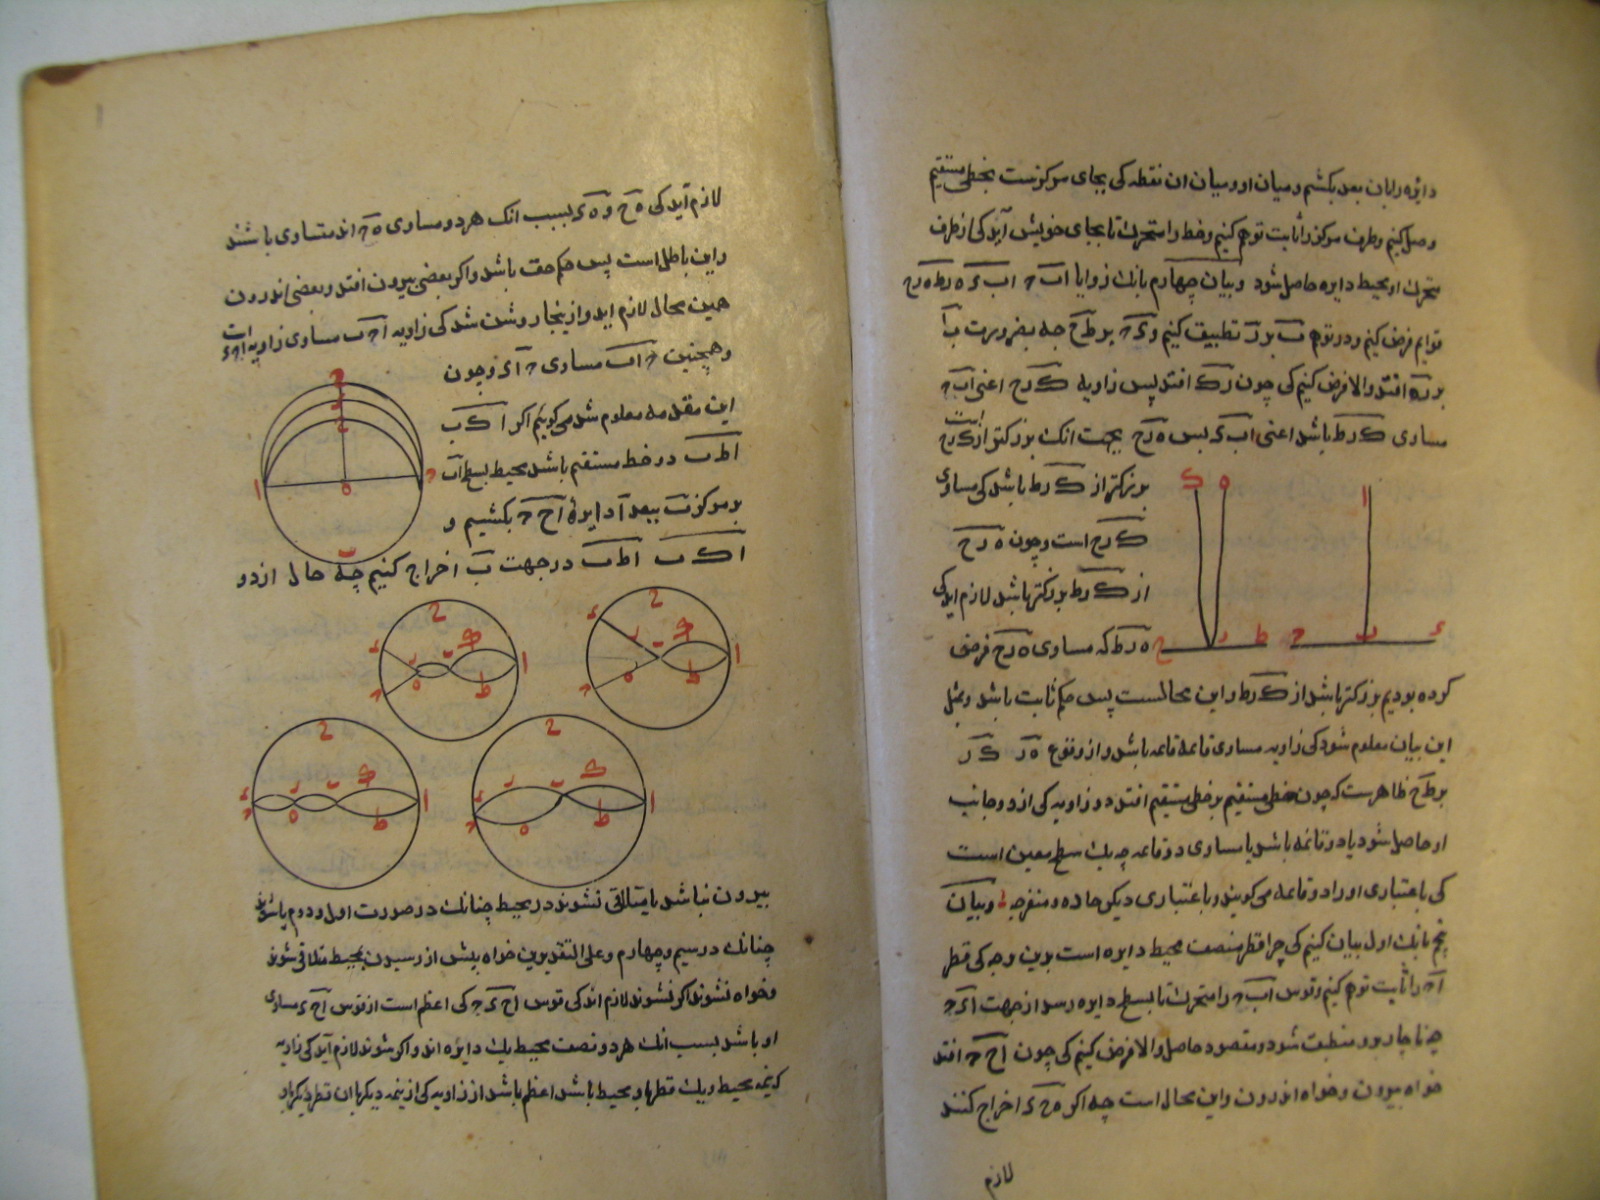 دایره را بان بعد بکشیم و میان او و میان ان نقطه کی بجای مرکزست بخطی مستقیم
وصل کنیم و طرف مرکز را ثابت توهم کنیم و خط را متحرک تا بجای خویش آید کی از طرف
متحرک او محیط دایره حاصل شود و بیان چهارم بانک زوایا اب ح اب ء ه رط ه رح
قوایم فرض کنیم و در توهم ب بر ر تطبیق کنیم و ء ح بر ط ح چه بضرورت ب ا
بر ر ه افتد والا فرض کنیم کی چون ر ک افتد پس زاویه ک ر ح اعنی ا ب ح
مساوی ک ر ط باشد اعنی ا ب ء پس ه ر ح بجهت انک بزرکتر از ک ر ح است
بزرکتر از ک ر ط باشد کی مساوی
ک ر ح است و چون ه ر ح
از ک ر ط بزرکتر باشد لازم اید کی
ه ر ط که مساوی ه ر ح فرض
کرده بودیم بزرکتر باشد از ک ر ط و این محالست پس حکم ثابت باشد و بمثل
این بیان معلوم شود کی زاویه مساوی قائمه قائمه باشد و از وقوع ه ر ک ر
بر ط ح ظاهرست که چون خطی مستقیم بر خطی مستقیم افتد دو زاویه کی از دو جانب
او حاصل شود یا دو قائمه باشد یا مساوی دو قائمه چه یک سطح بعین است
کی باعتباری او را دو قائمه می کویند و باعتباری دیکر حاده و منفرجه و بیان
پنجم بانک اول بیان کنیم کی چرا قطر منصف محیط دایره است بدین وجه کی قطر
ا ح را ثابت توهم کنیم و قوس ا ب ح را متحرک تا بسطح دایره رسد از جهت ا ء ح
چه ناچار برو منطبق شود و مقصود حاصل والا فرض کنیم کی چون ا ح ح افتد
خواه بیرون و خواه اندرون و این محال است چه اکر ه ح ء اخراج کنند
لازم
لازم آید کی ه ح و ه ء بسبب انک هر دو مساوی ه ح اند متساوی باشند
و این باطل است پس حکم حق باشد و اکر بعضی بیرون افتد و بعضی اندرون
همین محال لازم اید و از ینجا روشن شد کی زاویه ا ح ب مساوی زاویه ا ح ء است
و همچنین ح ا ب مساوی ح ا ء و چون
این مقدمه معلوم شد می کوییم اکر ا ک ب
ا ط ب دو خط مستقیم باشد محیط بسطح ا ب
بر مرکز ب ببعد ا دایرۀ ا ح ح بکشیم و
ا ک ب ا ط ب در جهت ب اخراج کنیم چه حال از دو
بیرون نباشد یا متلاقی نشوند در محیط چنانک در صورت اول و دوم یا شوند
چنانک در سیم و چهارم و علی التقدیرین خواه بیش از رسیدن بمحیط متلاقی شوند
و خواه نشوند اکر نشوند لازم اند کی قوس ا ح ء ح کی اعظم است از قوس ا ح ء مساوی
او باشد بسبب انک هر دو نصف محیط یک دایره اند و اکر شوند لازم آید کی زاویه
کی نیمه محیط و یک قطر بدو محیط باشد اعظم باشد از زاویه کی از نیمه دیکر با ان قطر دیکر باو